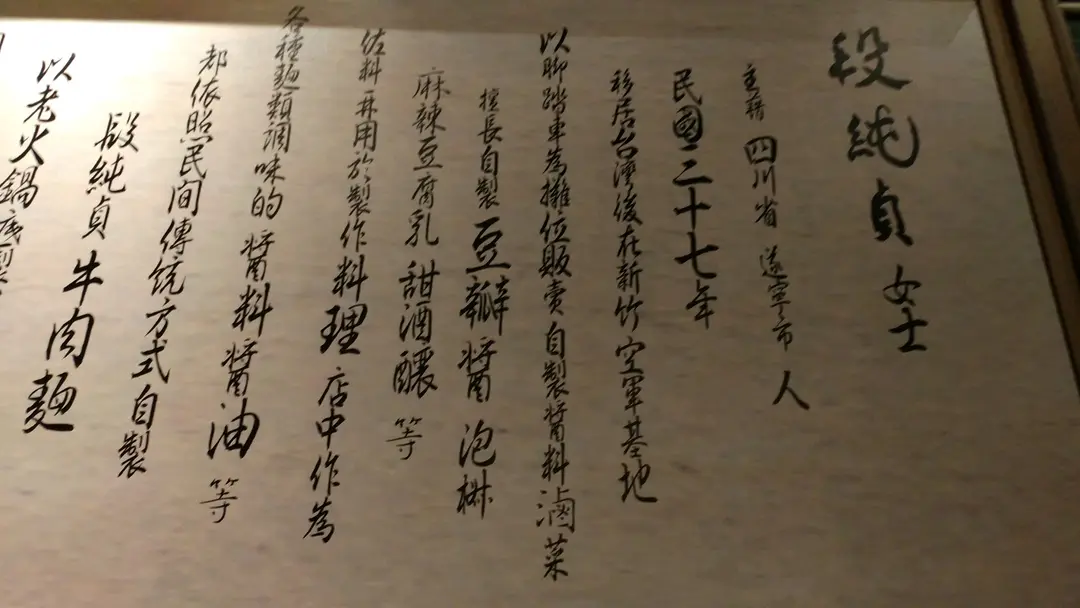 段純貞女士
主籍四川省遂寧市人
民國二十七年
移居台灣後在新竹空軍基地
以腳踏車為攤位販賣自製醬料滷菜
擅長自製豆瓣醬泡椒
麻辣豆腐乳甜酒釀等
佐料再用於製作料理店中作為
各種麵類調味的醬料醬油等
都依照民間傳統方式自製
段純貞牛肉麵
以老火鍋底製